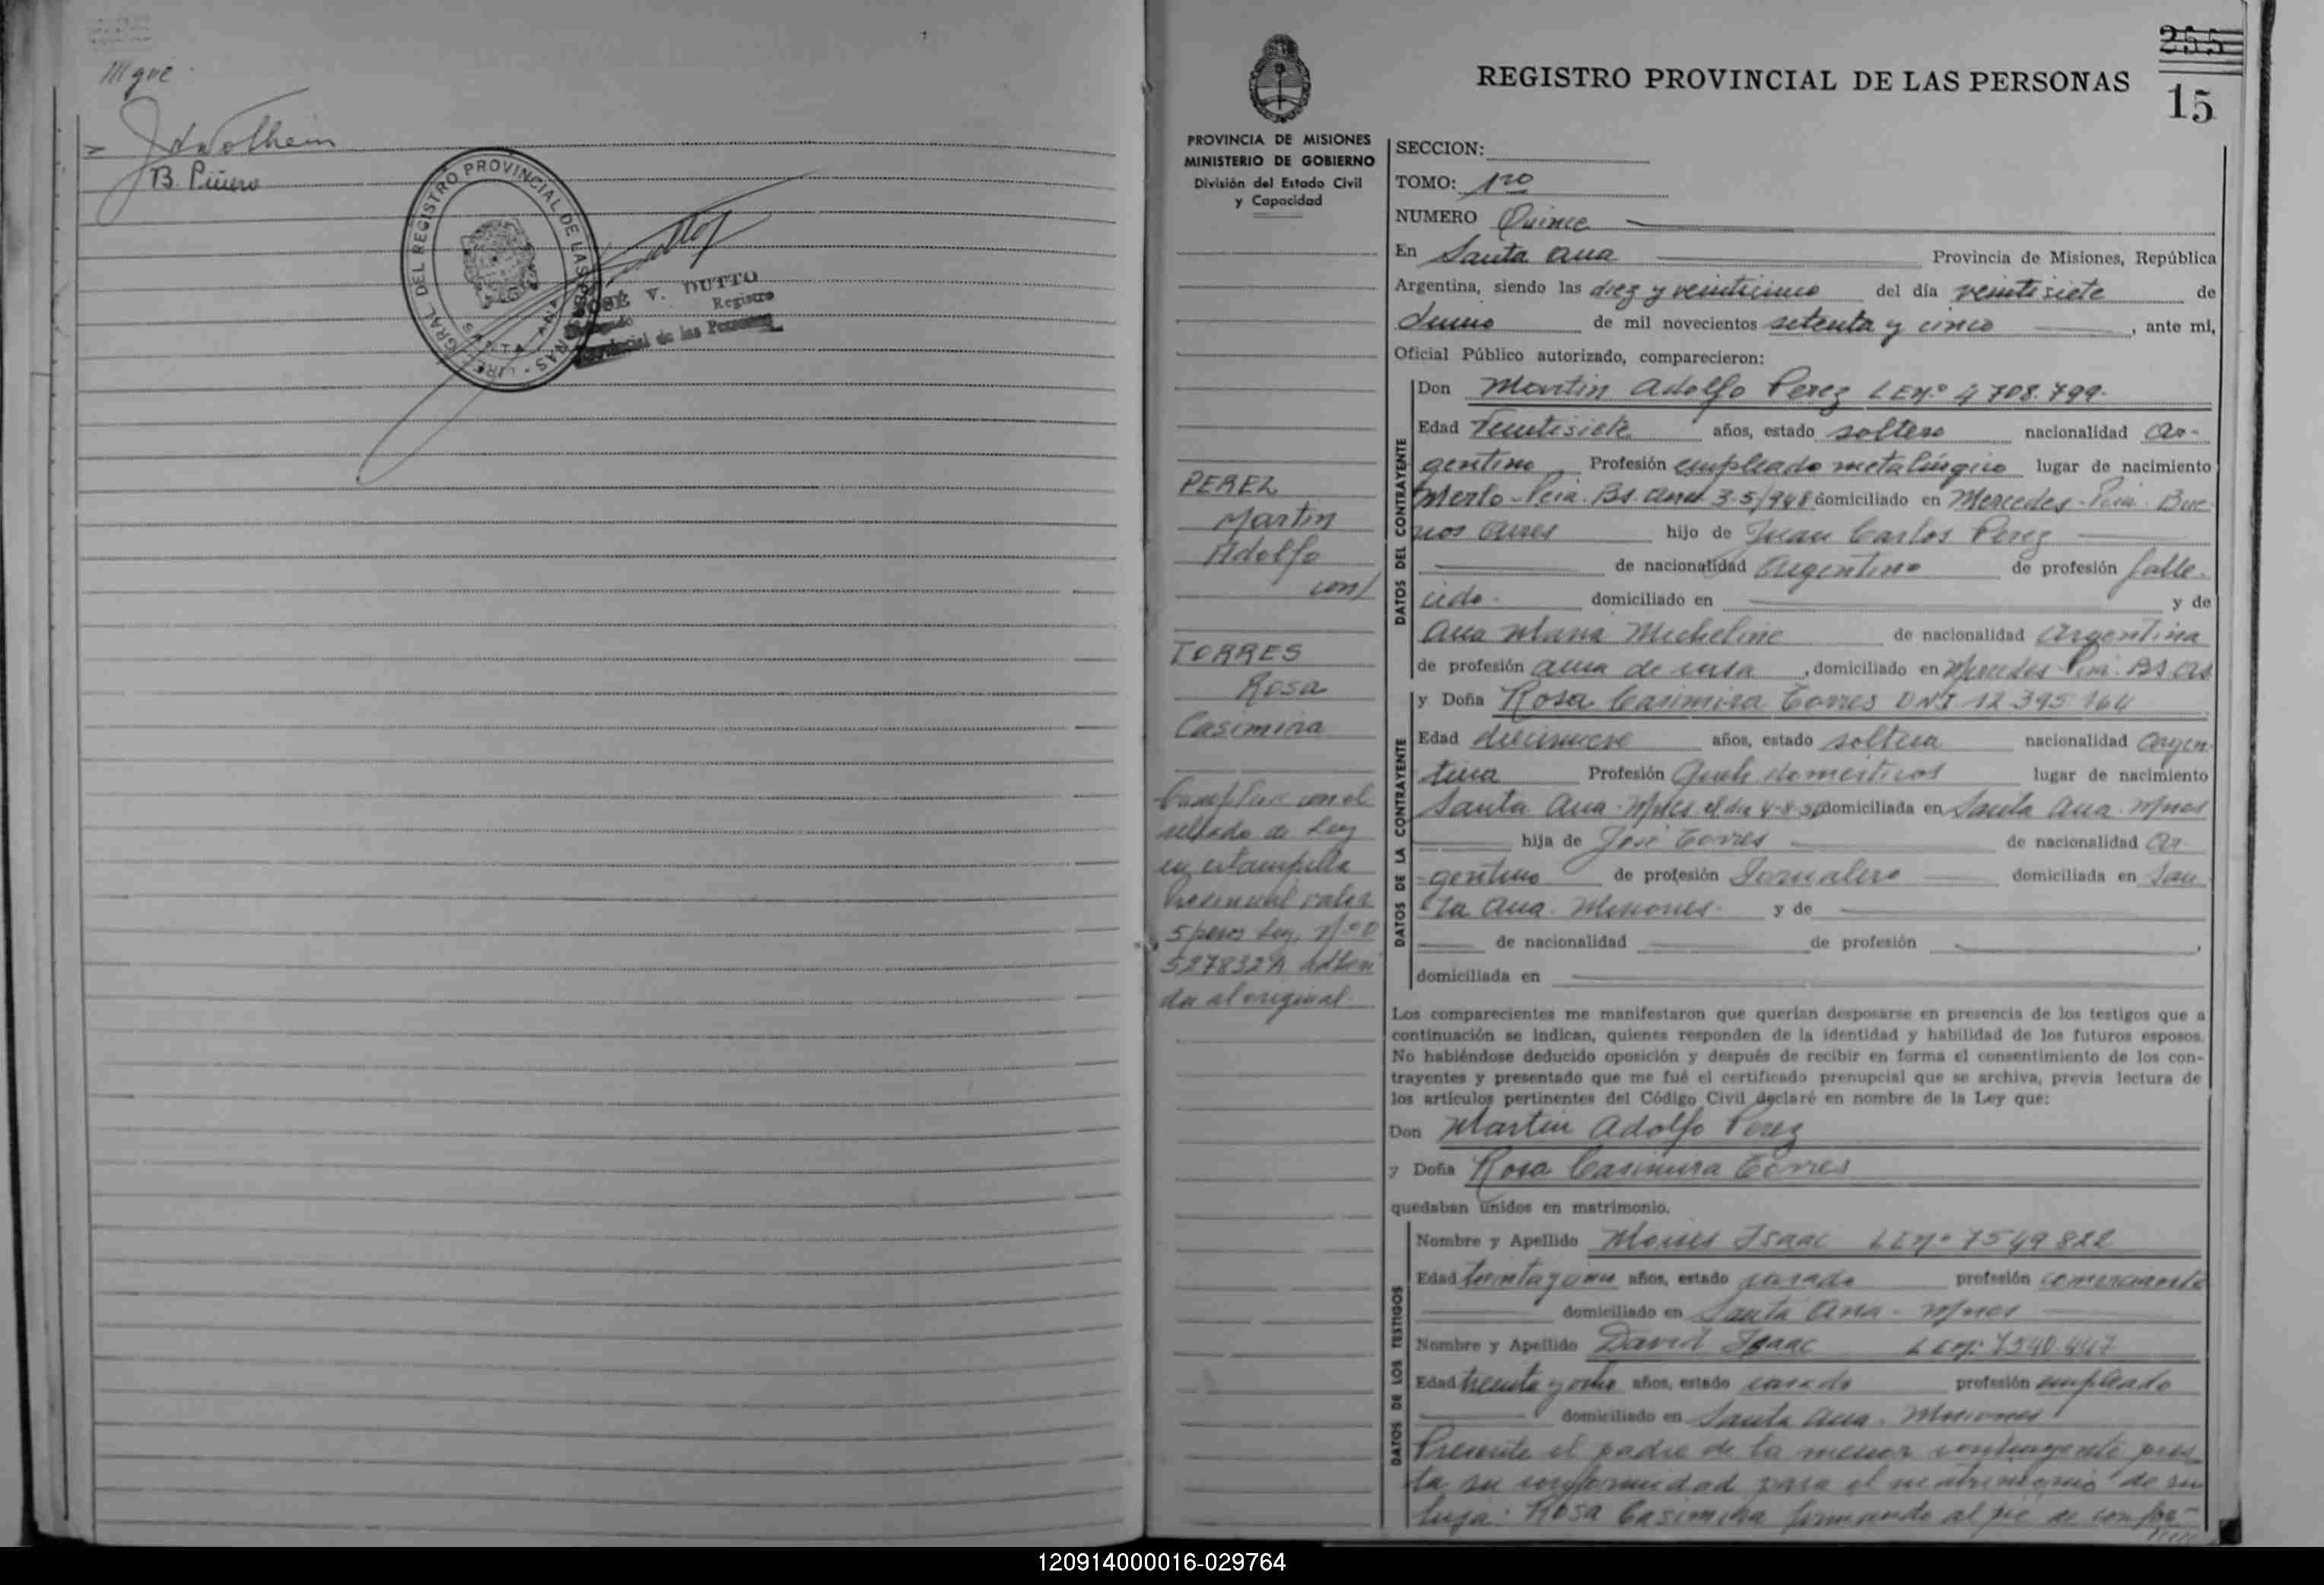 Mgue
B. Piñero
REGISTRO PROVINCIAL DE LAS PERSONAS
SANTA ANA
JOSÉ V. DUTTO
Delegado Registro
Provincial de las Personas
255
REGISTRO PROVINCIAL DE LAS PERSONAS
15
PROVINCIA DE MISIONES
MINISTERIO DE GOBIERNO
División del Estado Civil
y Capacidad
PEREZ
Martin
Adolfo
con/
TORRES
Rosa
Casimira
con el
sellado de Ley
en estampilla
valor
5 pesos Ley, Nº 0
527832A adheri
da al original.
SECCION:
TOMO: 1ro
NUMERO Quince
En Santa Ana Provincia de Misiones, República
Argentina, siendo las diez y veinticinco del día veintisiete de
Junio de mil novecientos setenta y cinco, ante mi,
Oficial Público autorizado, comparecieron:
DATOS DEL CONTRAYENTE
Don Martin Adolfo Perez LENº 4 708.799.
Edad Veintisiete años, estado soltero nacionalidad Ar-
gentino, Profesión empleado metalúrgico lugar de nacimiento
Merlo - Pcia. Bs. Aires 3-5/948 domiciliado en Mercedes - Pcia. Bue
nos Aires hijo de Juan Carlos Perez
de nacionalidad Argentino de profesión falle-
cido. domiciliado en y de
Ana Maria Micheline de nacionalidad Argentina
de profesión ama de casa, domiciliado en Mercedes Pcia. BS As
DATOS DE LA CONTRAYENTE
y Doña Rosa Casimira Torres DNI 12 395 164
Edad diecinueve años, estado soltera nacionalidad Argen-
tina Profesión Queh. domésticos lugar de nacimiento
Santa Ana - Mnes el dia 4-8-5 domiciliada en Santa Ana. Mnes
hija de José Torres de nacionalidad Ar
gentino de profesión Jornalero domiciliada en San
ta Ana. Misiones. y de
de nacionalidad de profesión,
domiciliada en
Los comparecientes me manifestaron que querían desposarse en presencia de los testigos que a
continuación se indican, quienes responden de la identidad y habilidad de los futuros esposos.
No habiéndose deducido oposición y después de recibir en forma el consentimiento de los con-
trayentes y presentado que me fué el certificado prenupcial que se archiva, previa lectura de
los artículos pertinentes del Código Civil declaré en nombre de la Ley que:
Don Martin Adolfo Perez
y Doña Rosa Casimira Torres
quedaban unidos en matrimonio.
DATOS DE LOS TESTIGOS
Nombre y Apellido Moises Isaac LENº 7549822
Edad treinta y años, estado casado profesión comerciante
domiciliado en Santa Ana - Mnes
Nombre y Apellido David Isaac LEN: 7540.447
Edad treinta y ocho años, estado casado profesión empleado
domiciliado en Santa Ana. Misiones
Presente el padre de la menor contrayente pres
ta su conformidad para el matrimonio de su
hija: Rosa Casimira firmando al pie de confor-
120914000016-029764